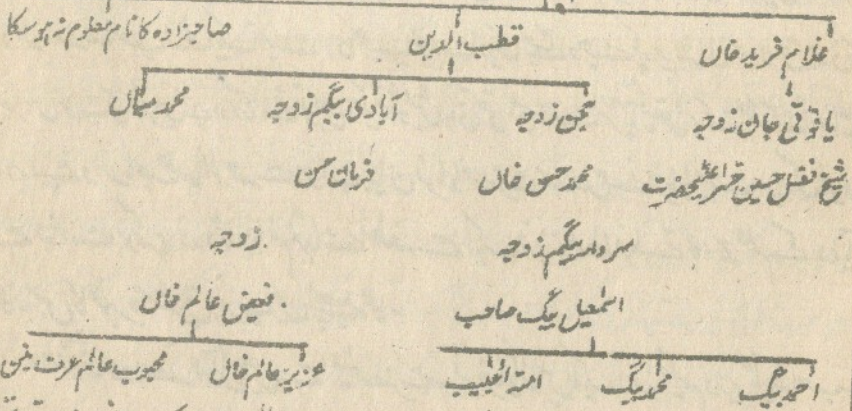 غلام فرید خاں قطب الدین صاحبزادہ کا نام معلوم نہ ہوسکا
یاقوتی جان زوجہ بجن زوجہ آبادی بیگم زوجہ محمد میاں
شیخ فضل حسین خسر اعلیٰحضرت محمد حسن خاں قربان حسن
سردار بیگم زوجہ زوجہ
اسمٰعیل بیگ صاحب فیض عالم خاں
احمد بیگ محمد بیگ امۃ الحبیب عزیز عالم خاں محبوب عالم عرف بنین